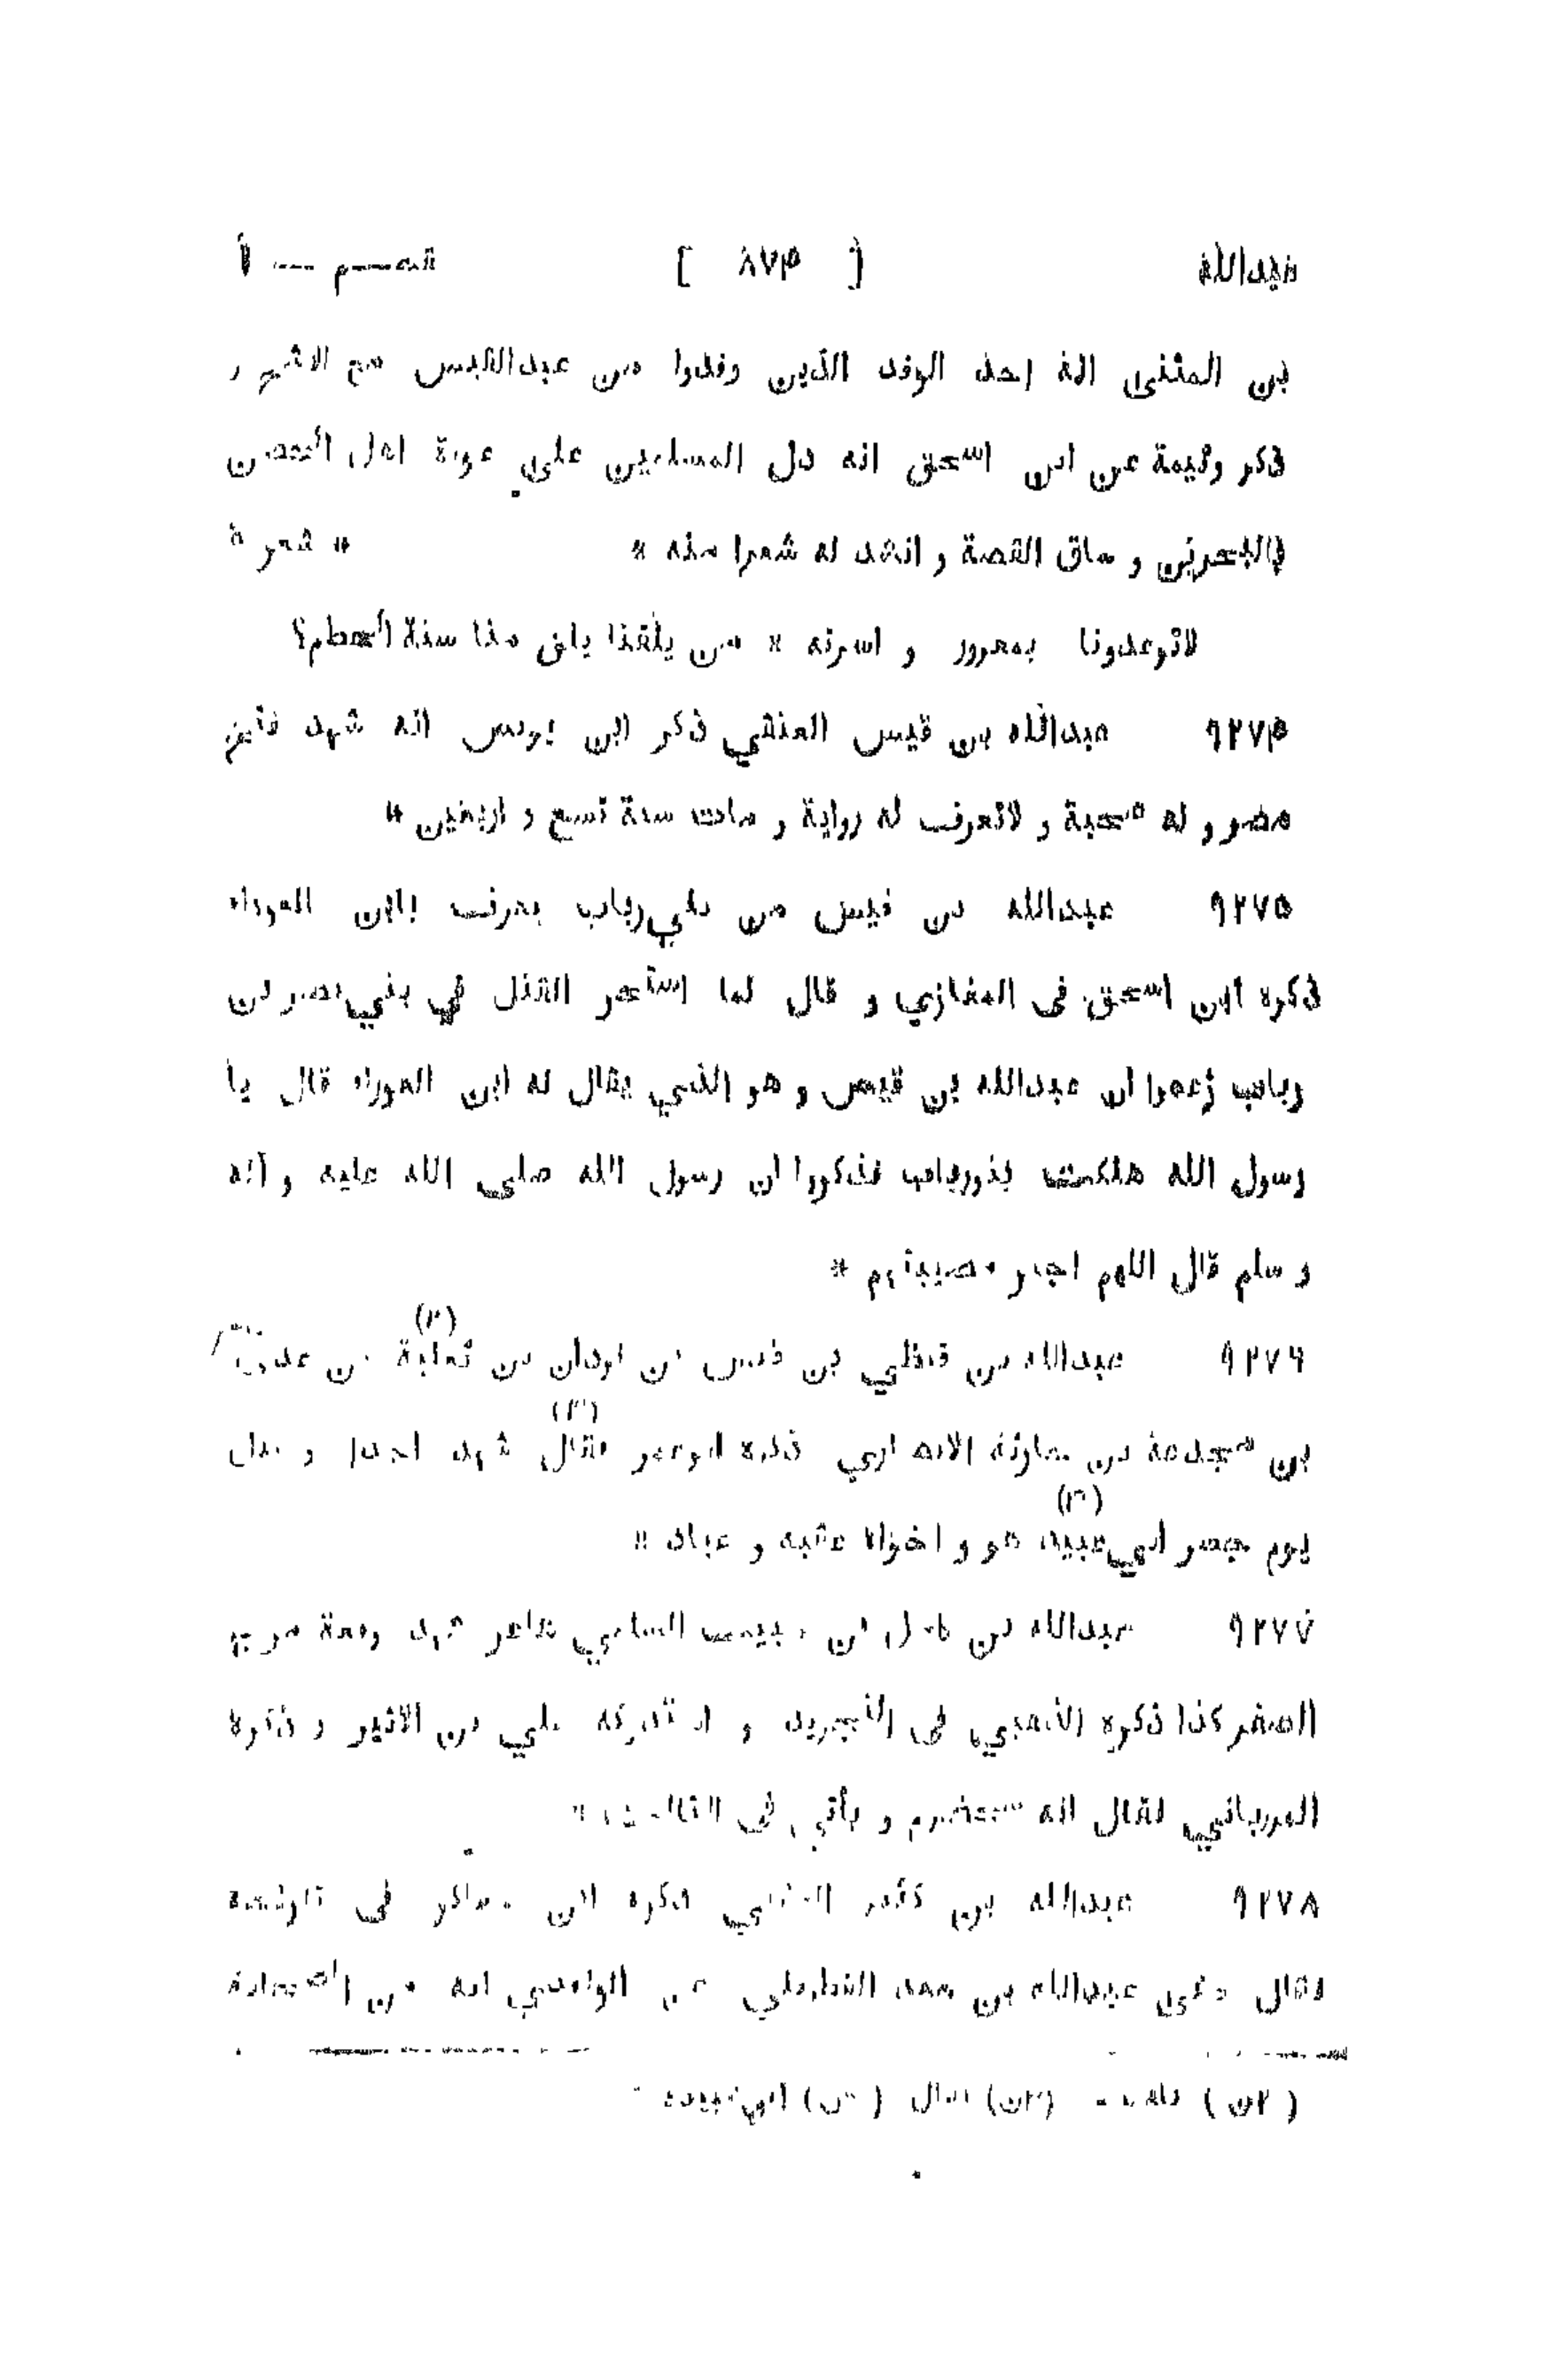 عبدالله [ ٨٧٤ ] قسم — ١
بن المثنى انه احد الوفد الذين وفدوا من عبدالقيس مع الاشج و
ذكر وثيمة عن ابن اسحق انه دل المسلمين على عورة اهل الحصن
بالبحرين و ساق القصة و انشد له شعرا منه * * شعر *
لاتوعدونا بمعرور و اسرته * من يلقنا يلق منا سنة الحطم؟
٩٢٧٤ عبدالله بن قيس العتقي ذكر ابن يونس انه شهد فتح
مصر و له صحبة و لاتعرف له رواية و مات سنة تسع و اربعين *
٩٢٧٥ عبدالله بن قيس من بني رباب يعرف بابن العوراء
ذكره ابن اسحق فى المغازي و قال لما استحر القتل في بني نصر بن
رباب زعموا ان عبدالله بن قيس و هو الذي يقال له ابن العوراء قال يا
رسول الله هلكت بنورباب فذكروا ان رسول الله صلى الله عليه و آله
و سلم قال اللهم اجبر مصيبتهم *
٩٢٧٦ عبدالله بن قيظي بن قيس بن لوذان بن ثعلبة (٢) بن عدي
بن مجدعة بن حارثة الانصاري ذكره ابوعمر فقال (٣) شهد احدا و قتل
يوم جسر ابي عبيد (٣) هو و اخواه عقبة و عباد *
٩٢٧٧ عبدالله بن بن السلمي شاعر شهد وقعة مرج
الصفر كذا ذكره الذهبي فى التجريد و استدركه علي بن الاثير و ذكره
المرزباني فقال انه مخضرم و يأتي فى الثالث *
٩٢٧٨ عبدالله بن ذكره ابن عساكر فى تاريخه
فقال حكى عبدالله بن سعد القطربلي عن الواقدي انه من الصحابة
(٢ن) (٣ن) قال ( ن) ابي عبيدة